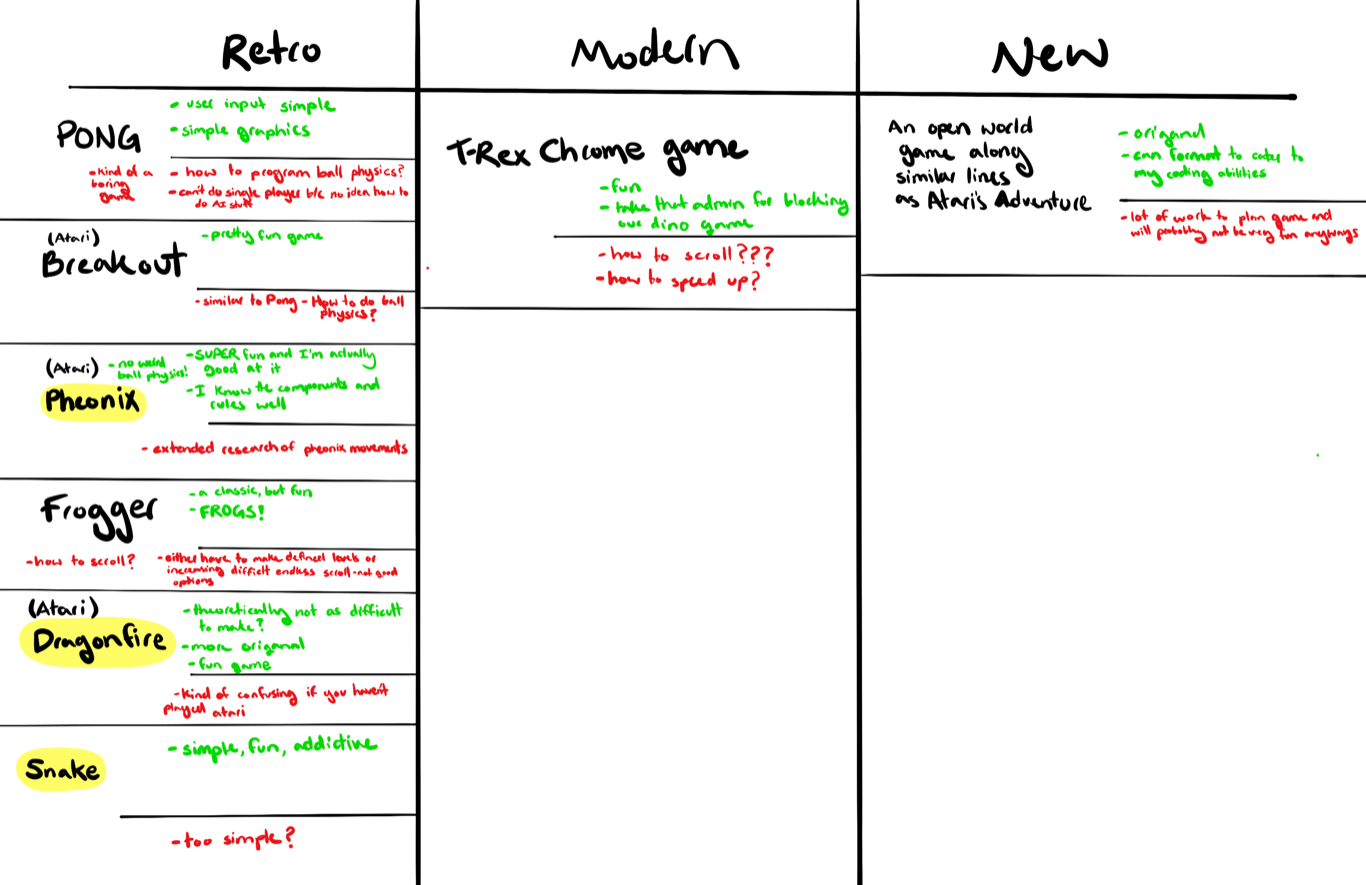 Retro
Modern
New
PONG
• user input simple
• simple graphics
• kind of a
boring
game
- how to program ball physics?
- can't do single player b/c no idea how to
do AI stuff
(Atari)
Breakout
- pretty fun game
- similar to Pong - How to do ball
physics?
(Atari)
Pheonix
- no weird
ball physics!
- SUPER fun and I'm actually
good at it
- I know the components and
rules well
- extended research of pheonix movements
Frogger
- a classic, but fun
- FROGS!
- how to scroll?
- either have to make defined levels or
increasing difficlt endless scroll - not good
options
(Atari)
Dragonfire
- theoretically not as difficult
to make?
- more origanal
- fun game
- kind of confusing if you haven't
played atari
Snake
- simple, fun, addictive
- too simple?
T-Rex Chrome game
- fun
- take that admin for blocking
our dino game
- how to scroll???
- how to speed up?
An open world
game along
similar lines
as Atari's Adventure
- origanal
- can format to cater to
my coding abilities
- lot of work to plan game and
will probably not be very fun anyways